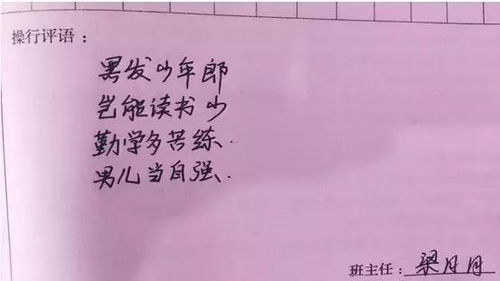 操行评语：
黑发少年郎
岂能读书少
勤学多苦练.
男儿当自强.
班主任：梁月月